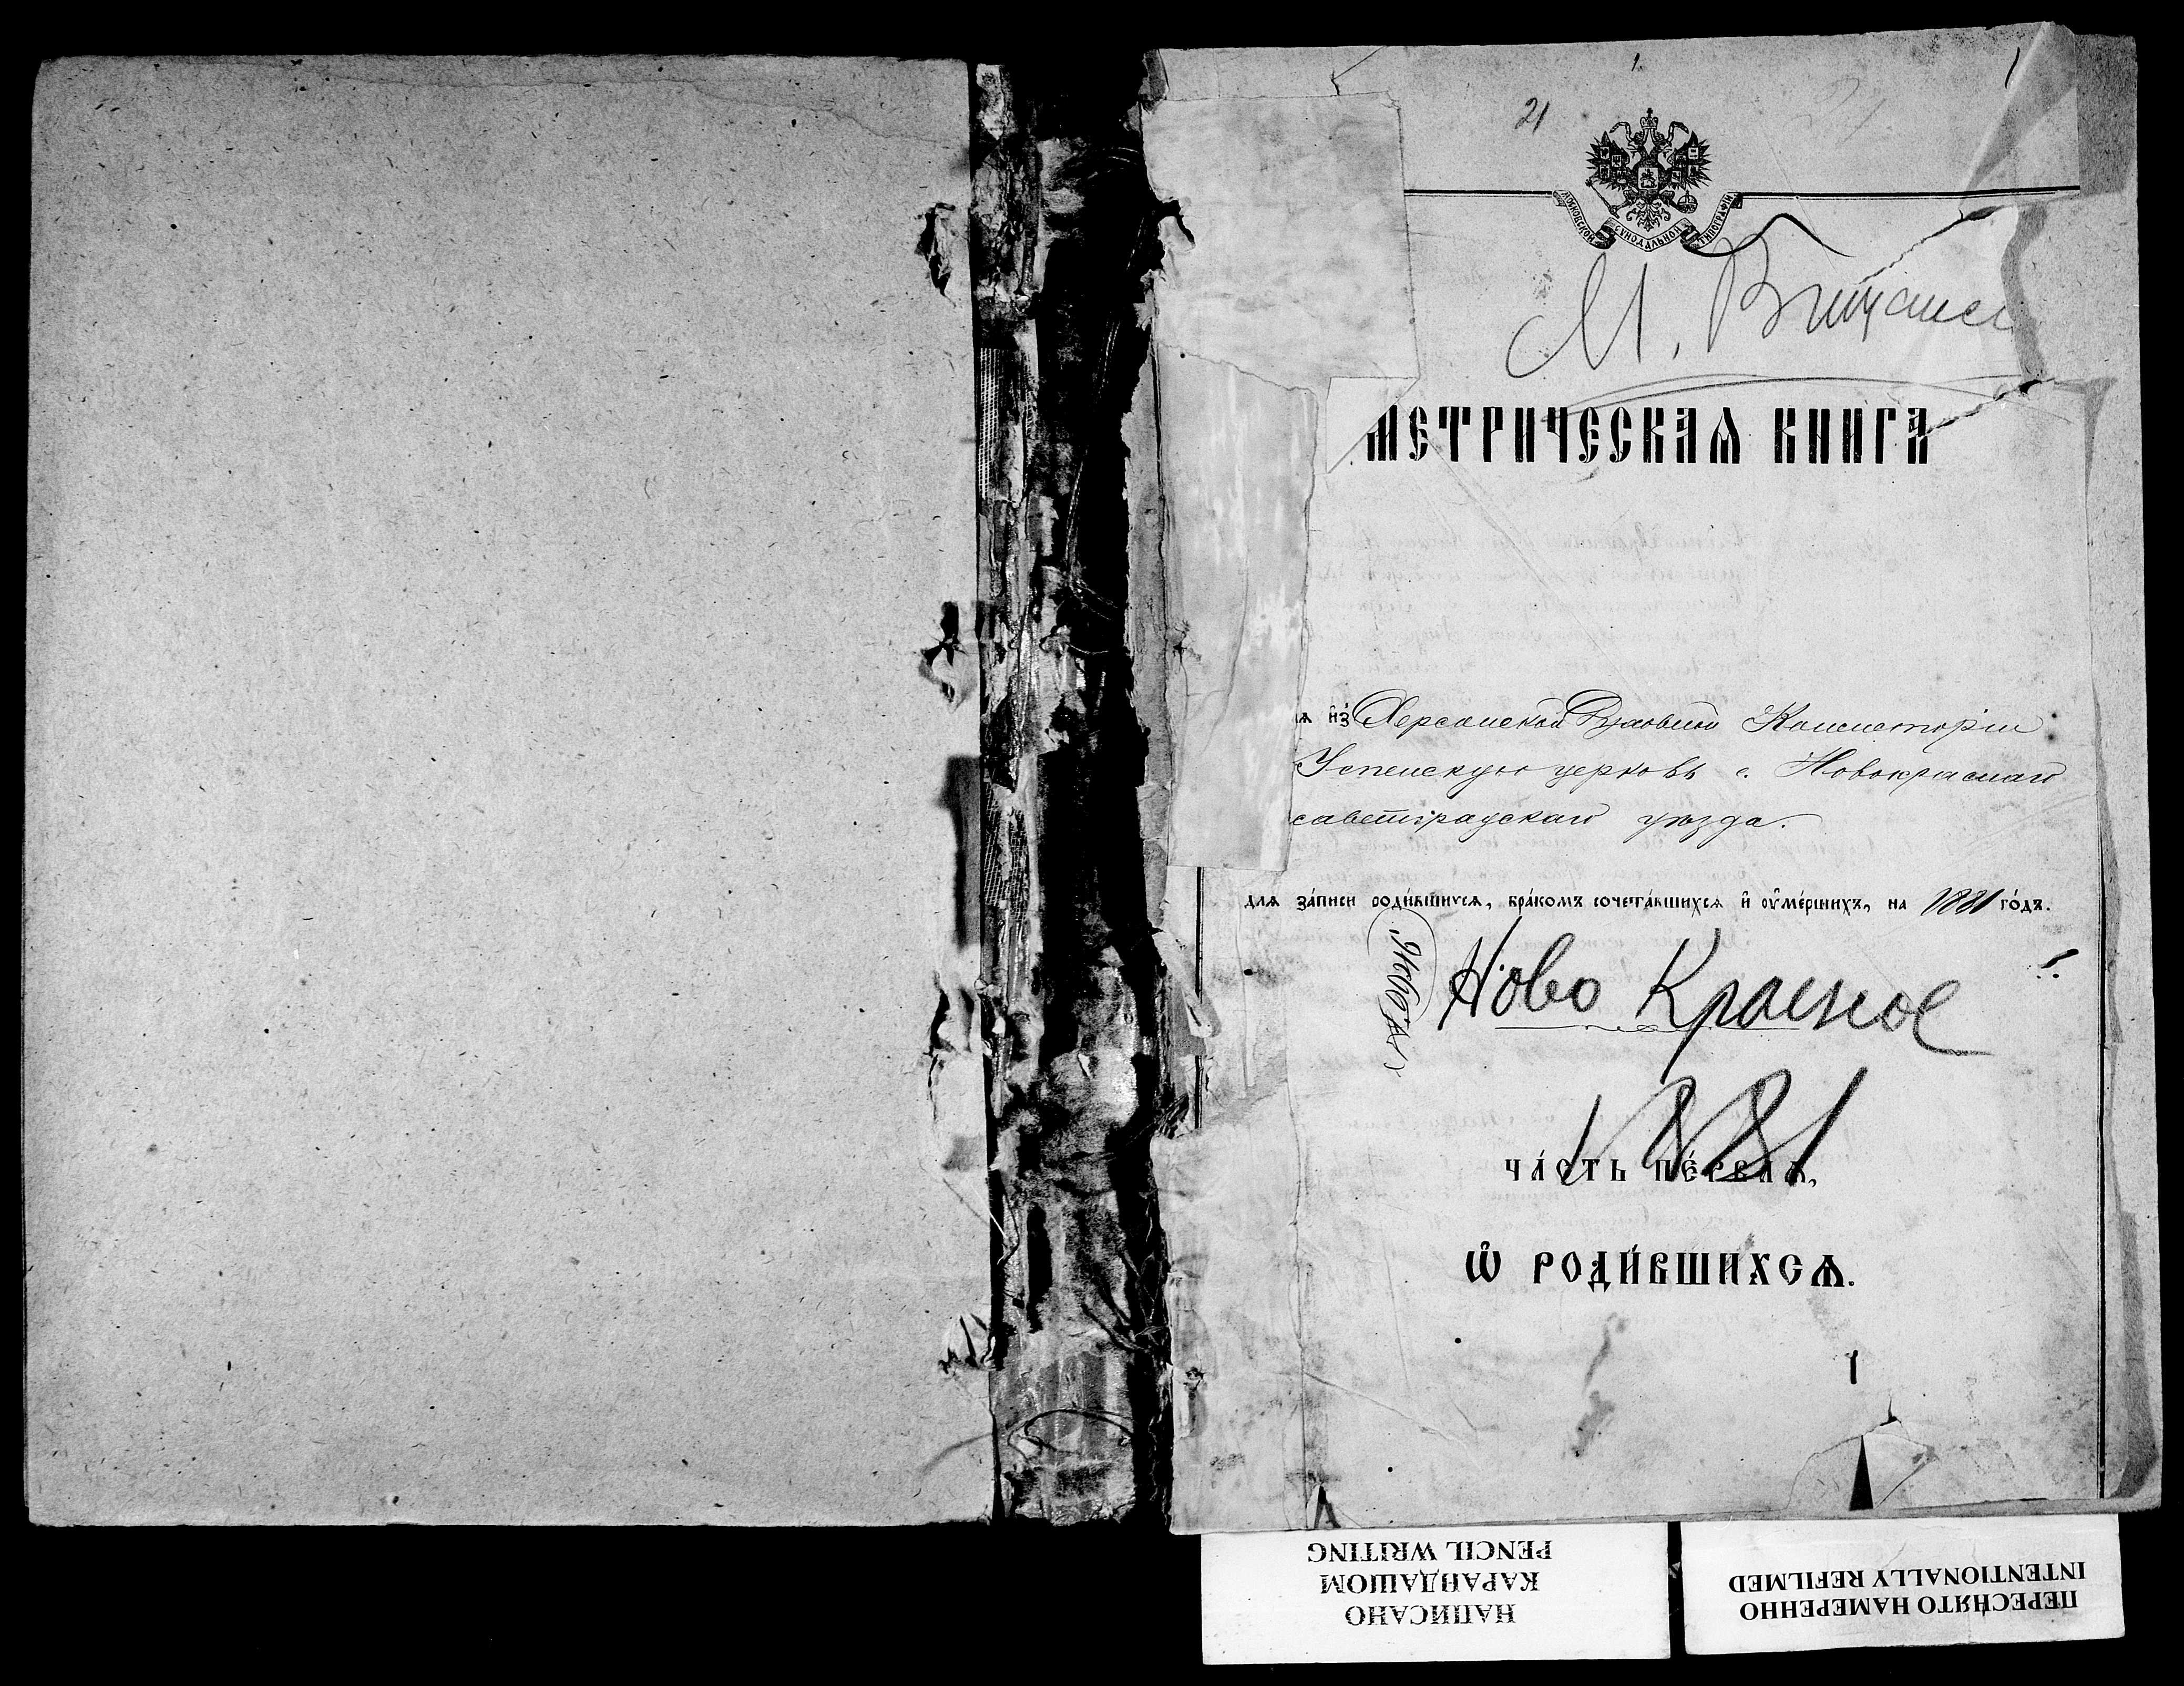 21
МОСКОВСКОЙ СѴНОДАЛЬНОЙ ТИПОГРАФІИ
М.
МЕТРИЧЕСКАѦ КНИГА
ѧ и҆з̾ Херсонской Духовной Консисторіи
Успенскую церковь с. Новокраснаго
саветградскаго уѣзда.
для за́писи роди́вшихсѧ, бра́комъ сочета́вшихсѧ и҆ ᲂу҆ме́ршихъ, на 1881 го́дъ.
Ново Красное
1881
ЧА́СТЬ ПЕ́РВАѦ,
Ѽ РОДИ́ВШИХСѦ.
НАПИСАНО
КАРАНДАШОМ
PENCIL WRITING
ПЕРЕСНЯТО НАМЕРЕННО
INTENTIONALLY REFILMED